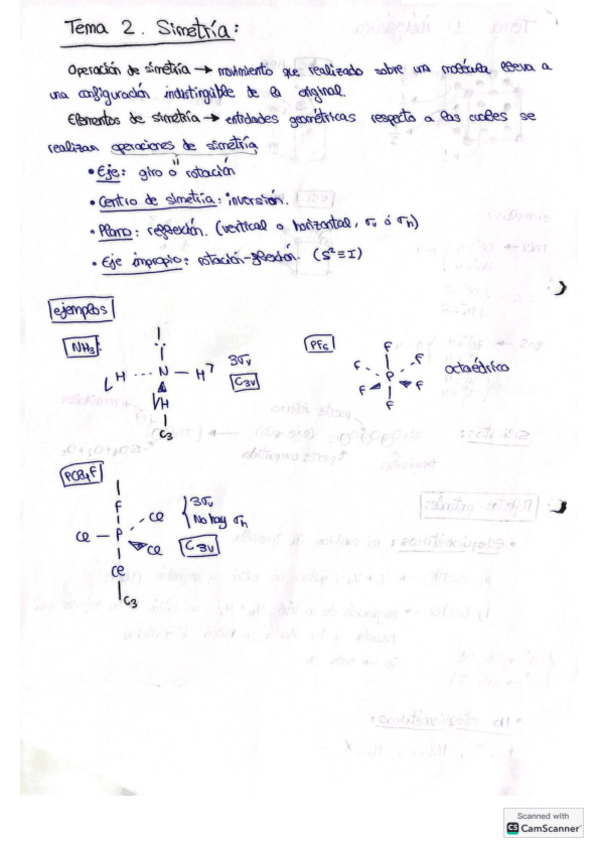 Tema 2. Simetría:
Operación de simetría → movimiento que realizado sobre una molécula lleva a
una configuración indistinguible de la original.
Elementos de simetría → entidades geométricas respecto a las cuales se
realizan operaciones de simetría
• Eje: giro o rotación
• Centro de simetría: inversión.
• Plano: reflexión. (vertical o horizontal, σv ó σh)
• Eje impropio: rotación-reflexión. (S² ≡ I)
ejemplos
NH3
H N H
H
3σv
C3v
C3
PF6
F
F F
P
F F
F
octaédrico
PCl4F
F
Cl
Cl P
Cl
Cl
3σv
No hay σh
C3v
C3
Scanned with
CS CamScanner